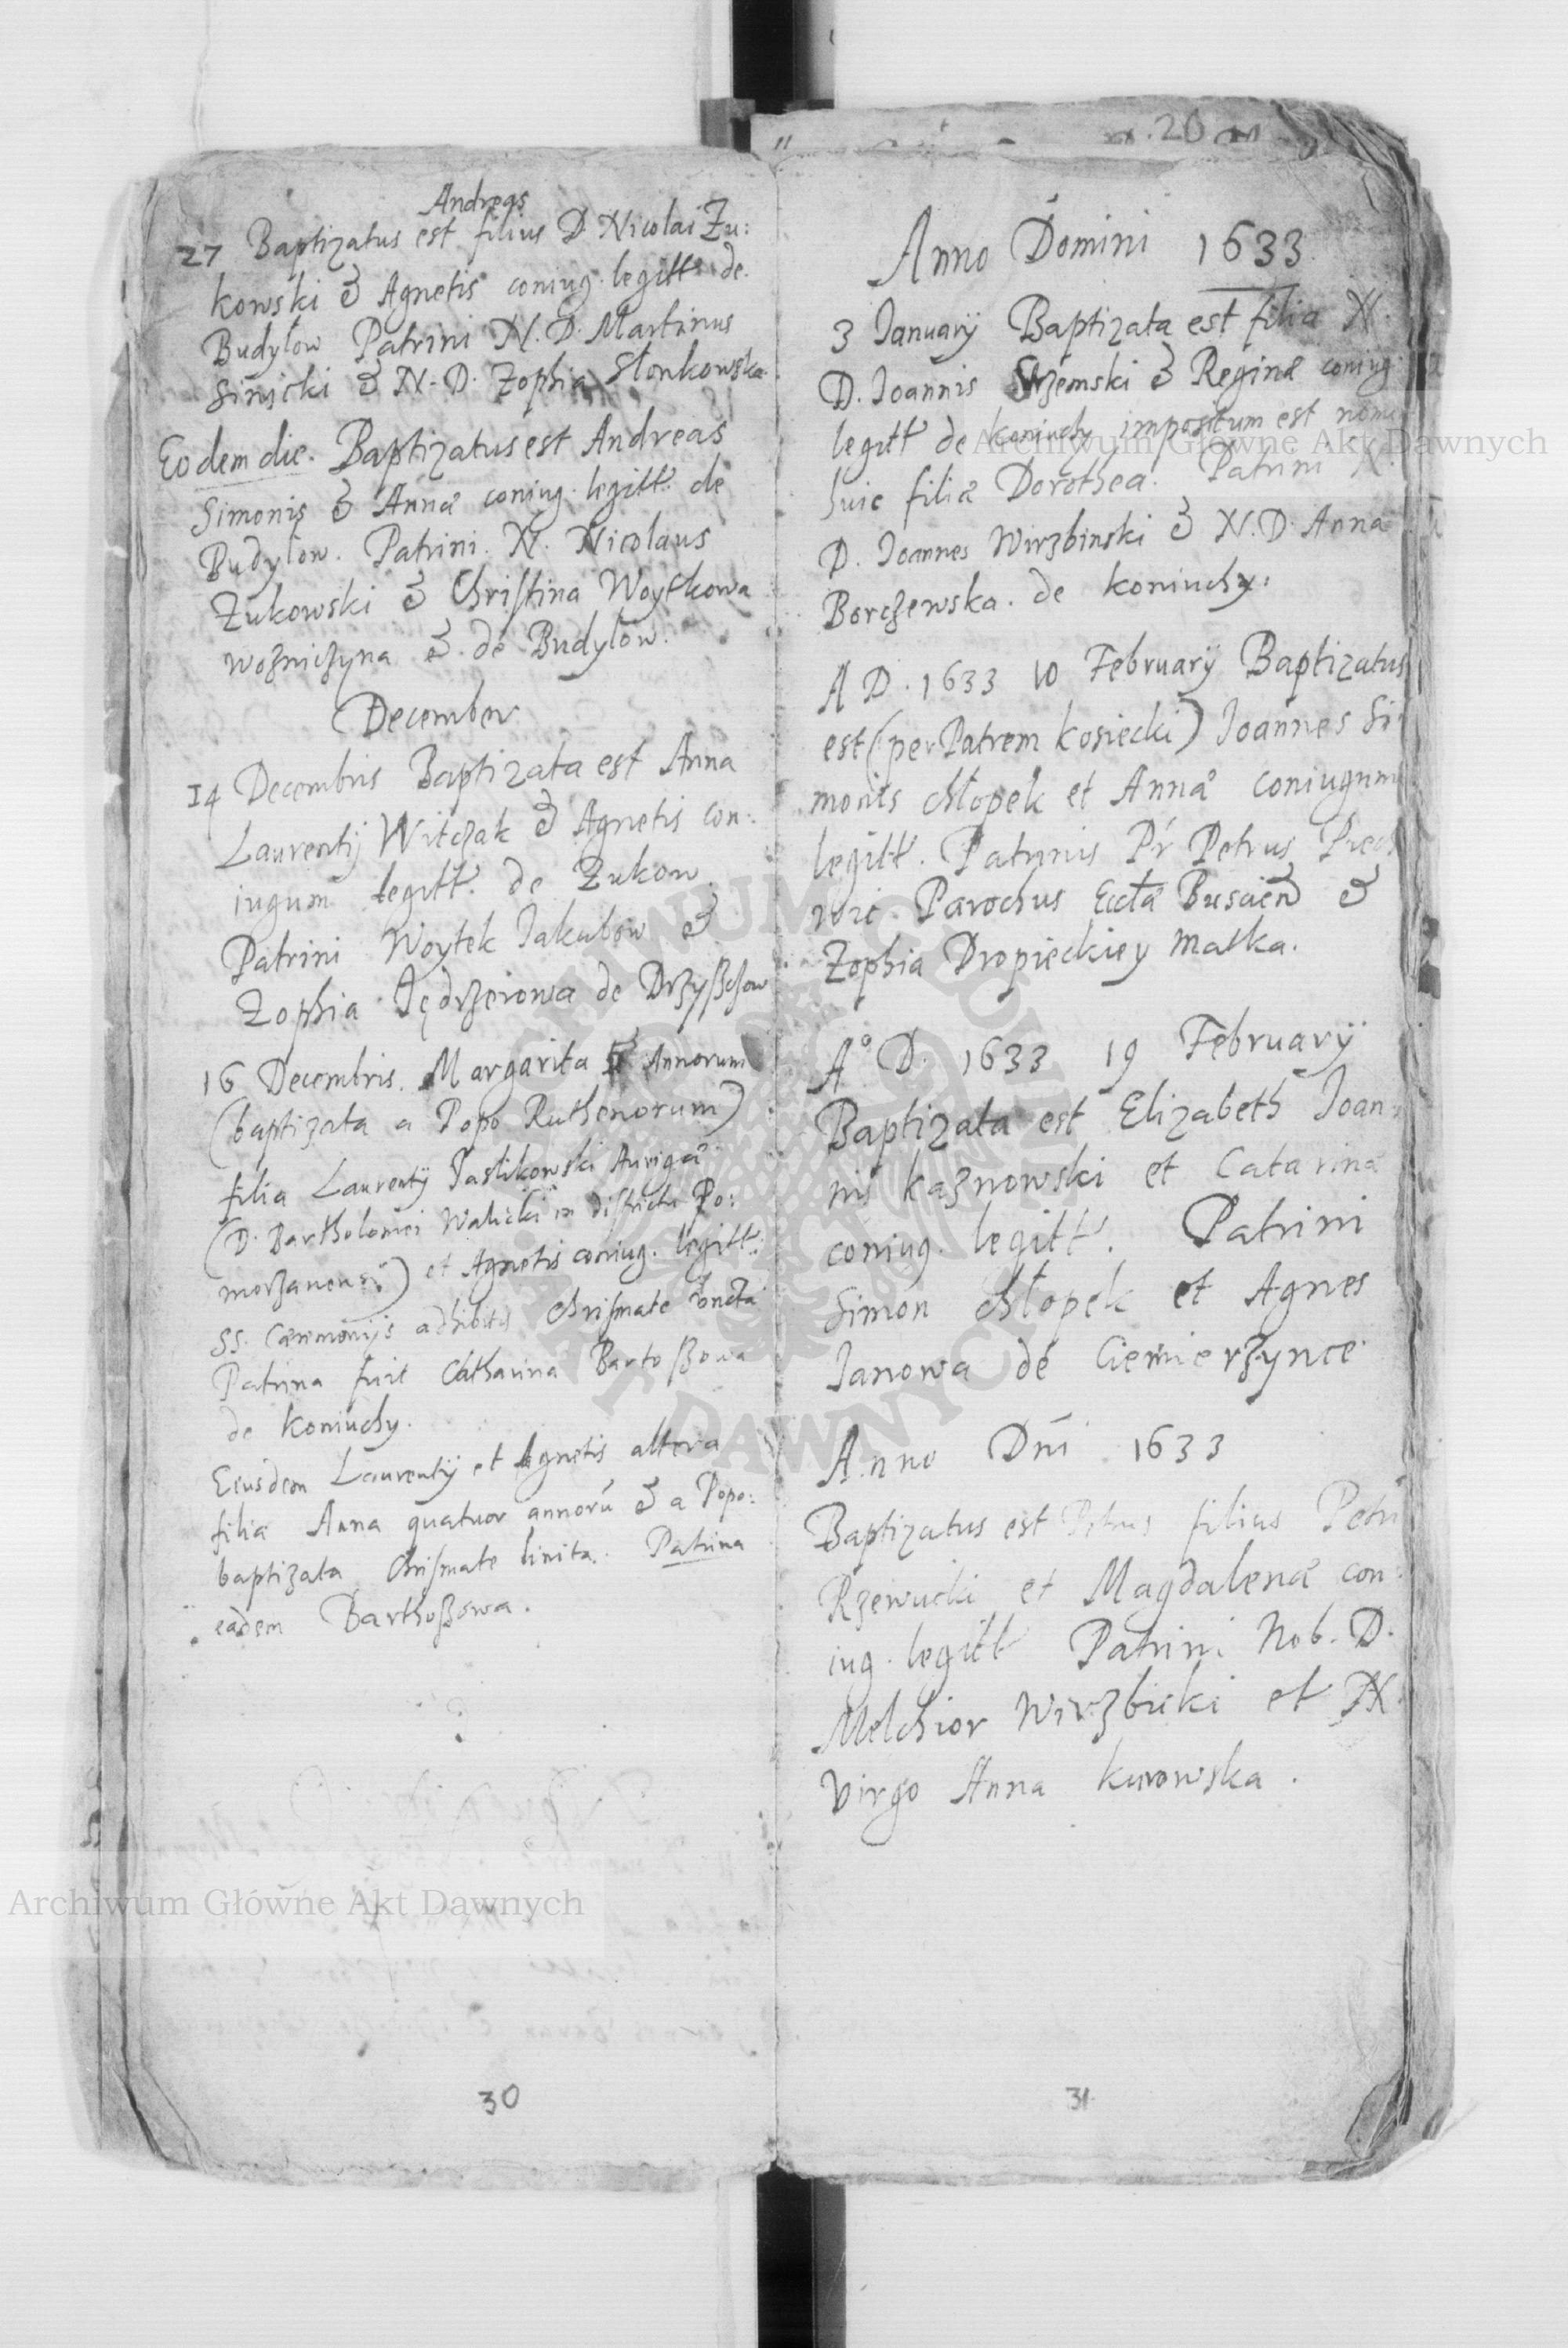 Andreas
27 Baptizatus est filius D. Nicolai Zu:
kowski & Agnetis coniug. legitt. de.
Budyłow Patrini N. D. Martinus
Sinicki & N. D. Zophia Słonkowska.
Eodem die. Baptizatus est Andreas
Simonis & Annæ coniug. legitt. de
Budyłow. Patrini. N. Nicolaus
Zukowski & Christina Woytkowa
wozniczyna & de Budyłow.
December
14 Decembris Baptizata est Anna
Laurentij Witczak & Agnetis con:
iugum legitt. de Zukow.
Patrini Woytek Jakubow &
Zophia Jędrzeiowa de Drzyßczow
16 Decembris. Margarita Annorum
(baptizata a Popo Ruthenorum)
filia Laurentij Paslikowski Aurigæ
(D. Bartholomei Walicki in districtu Po:
morzanensi) et Agnetis coniug. legitt.
SS. Cæremonijs adhibitis Chrismate uncta
Patrina fuit Catharina Bartoßowa
de Koniuchy.
Eiusdem Laurentij et Agnetis altera
filia Anna quatuor annorū & a Popo:
baptizata Chrismate linita. Patrina
eadem Barthoßowa.
30
20
Anno Domini 1633
3 Ianuarij Baptizata est filia N.
D. Joannis Strzemski & Reginæ coniug
legitt de Koniuchy impositum est nom
huic filiæ Dorothea. Patrini N.
D. Joannes Wirzbinski & N. D. Anna
Borczewska. de Koniuchy:
A D. 1633 10 February Baptizatus
est (per Patrem Kosiecki) Joannes Si
monis Chłopek et Annæ coniugum
legitt. Patrinis Pr Petrus
Parochus Eccłæ Buscien &
Zophia Dropieckiey Matka.
A° D. 1633 19 February
Baptizata est Elizabeth Joan
nis Kaznowski et Catarinæ
coniug. legitt. Patrini
Simon Chłopek et Agnes
Janowa de Ciemierzynce
Anno Dni 1633
Baptizatus est Petrus filius Petri
Rzewucki et Magdalenæ con
iug. legitt Patrini Nob. D.
Melchior Wirzbicki et N.
Virgo Anna Kurowska.
31
Archiwum Główne Akt Dawnych
Archiwum Główne Akt Dawnych
ARCHIWUM GŁÓWNE AKT DAWNYCH